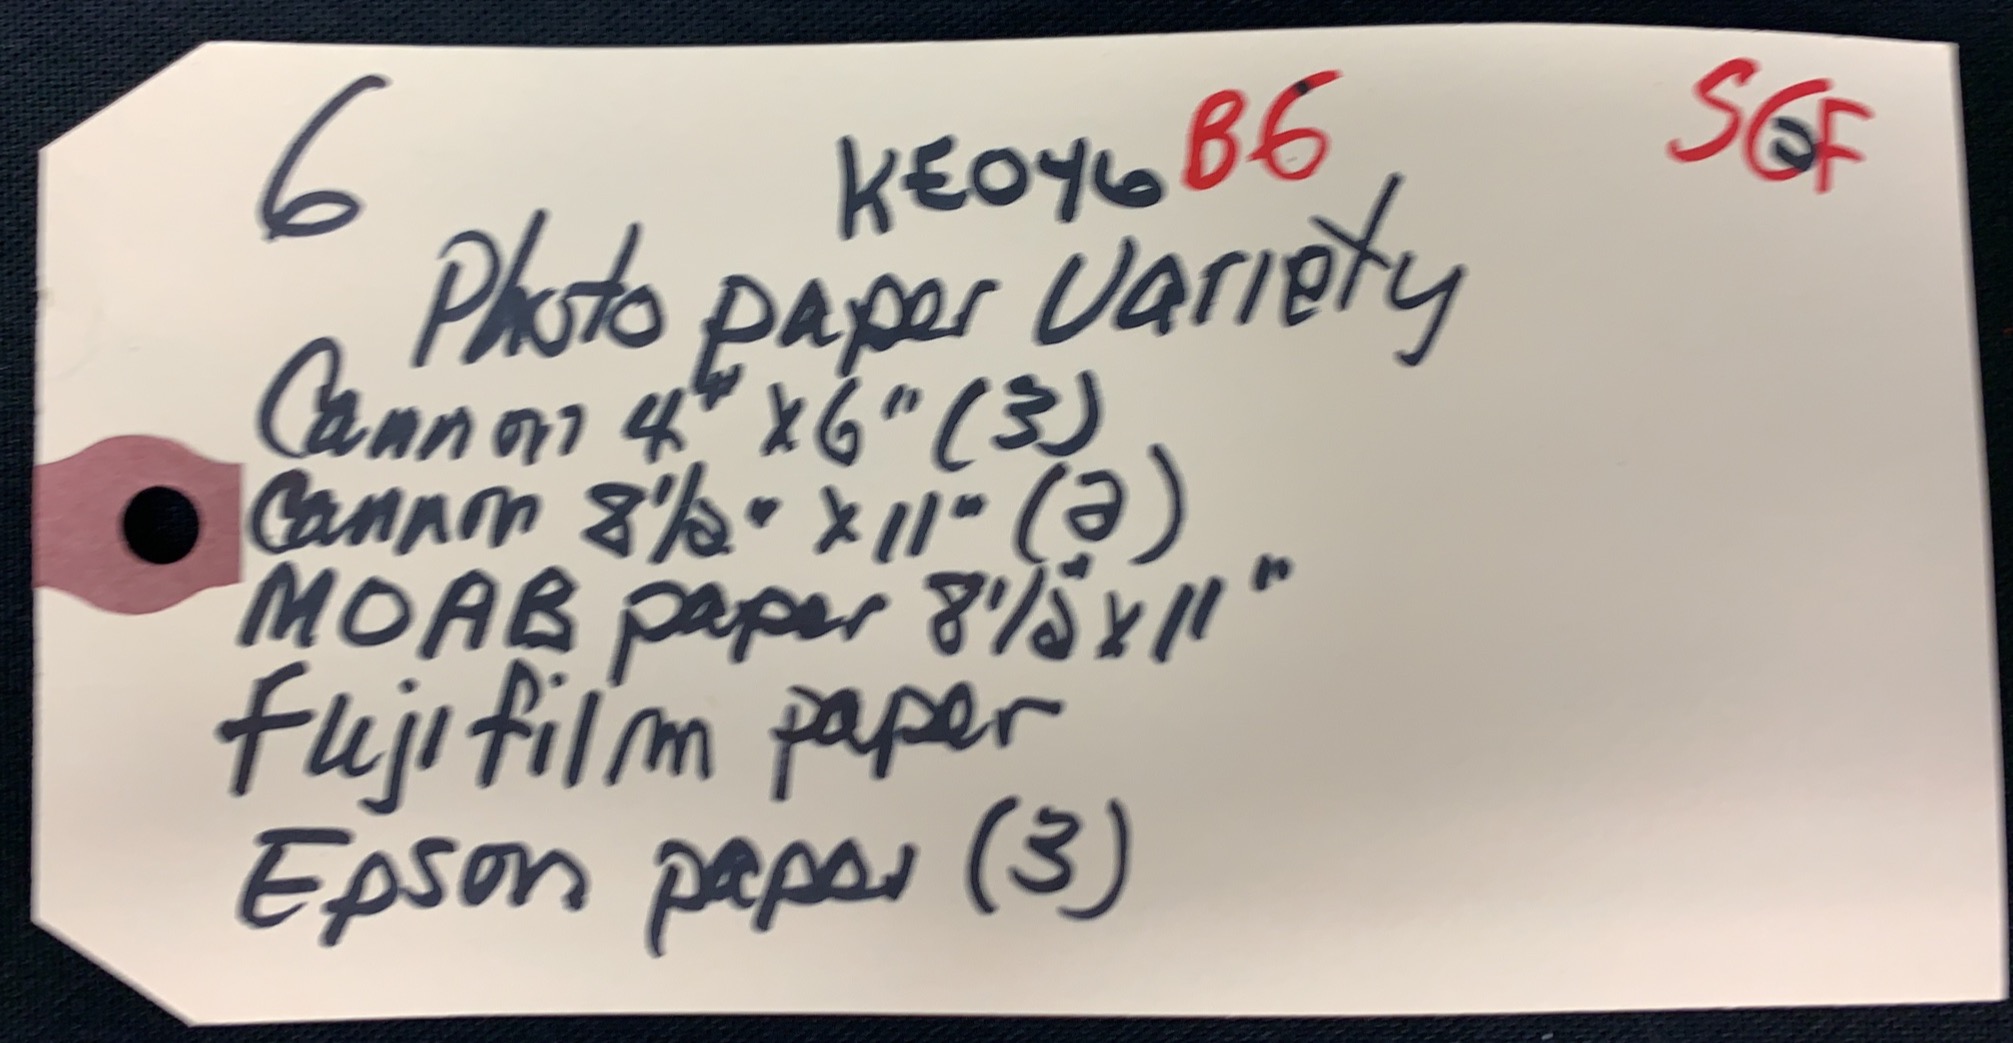 6 KE046 B6 SGF
Photo paper Variety
Cannon 4" x 6" (3)
Cannon 8 1/2" x 11" (2)
MOAB paper 8 1/2" x 11"
fuji film paper
Epson paper (3)